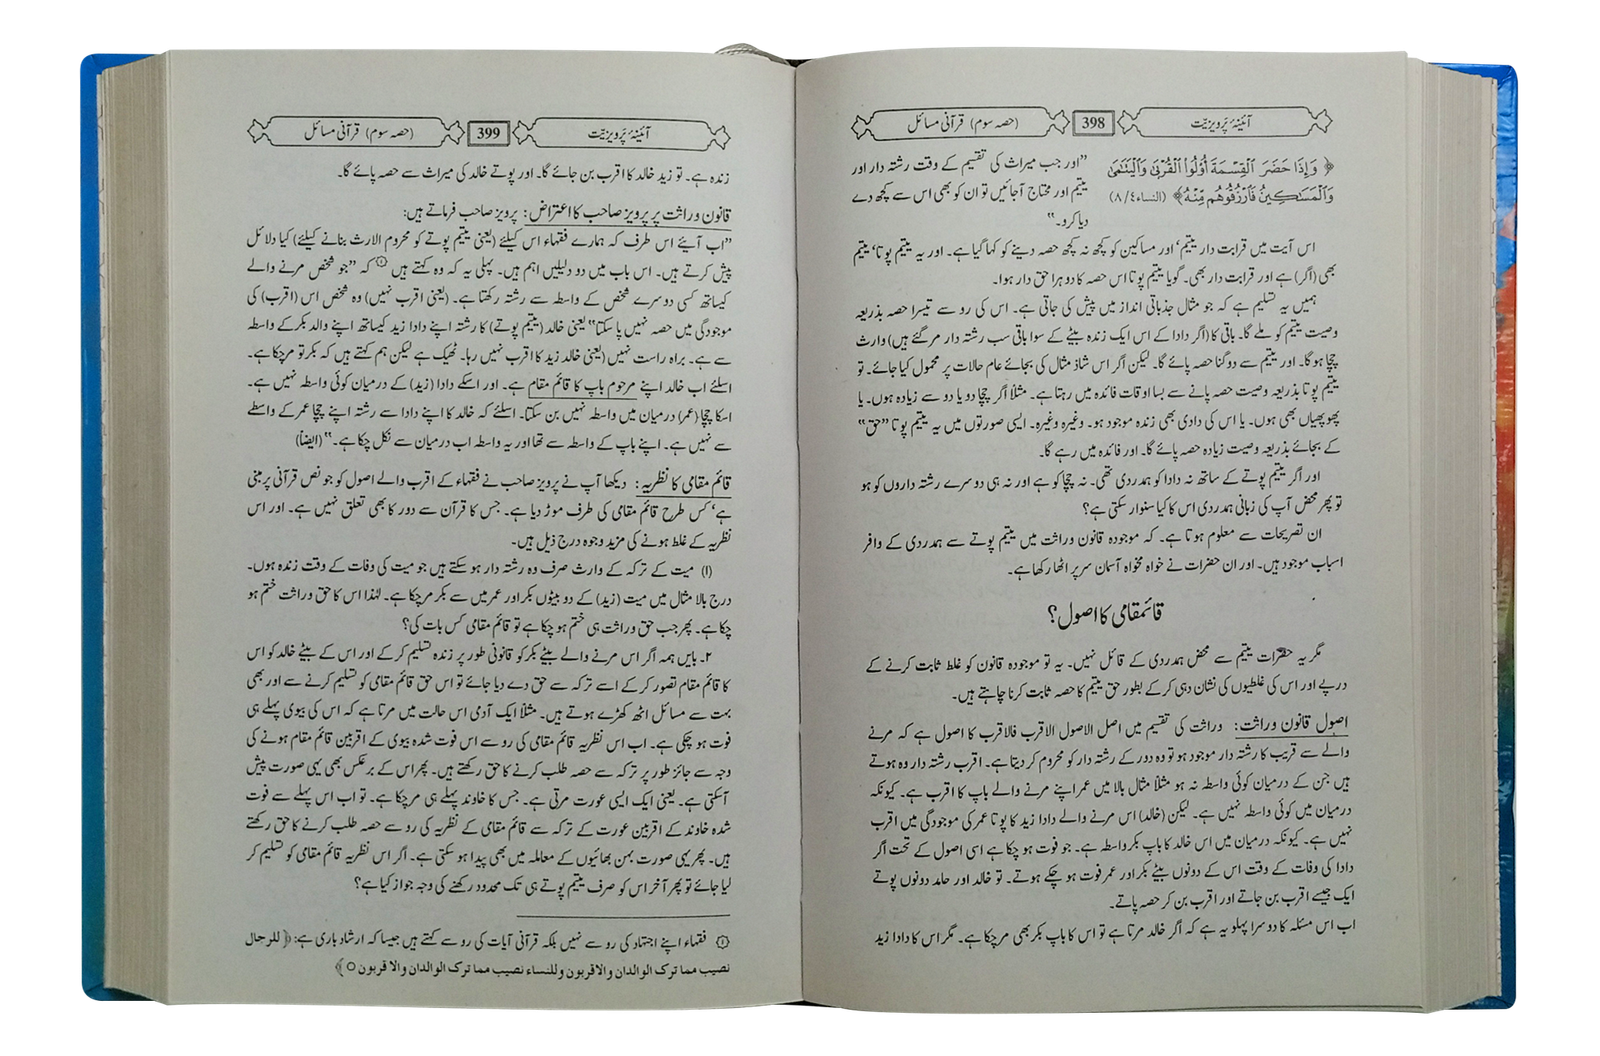 آئینۂ پرویزیت 398 (حصہ سوم) قرآنی مسائل
﴿ وَإِذَا حَضَرَ ٱلْقِسْمَةَ أُوْلُواْ ٱلْقُرْبَىٰ وَٱلْيَتَـٰمَىٰ
وَٱلْمَسَـٰكِينُ فَٱرْزُقُوهُم مِّنْهُ﴾ (النساء٤/٨)
”اور جب میراث کی تقسیم کے وقت رشتہ دار اور
یتیم اور محتاج آجائیں تو ان کو بھی اس سے کچھ دے
دیا کرو۔“
اس آیت میں قرابت دار یتیم‘ اور مساکین کو کچھ نہ کچھ حصہ دینے کو کہا گیا ہے۔ اور یہ یتیم پوتا‘ یتیم
بھی (اگر) ہے اور قرابت دار بھی۔ گویا یتیم پوتا اس حصہ کا دوہرا حق دار ہوا۔
ہمیں یہ تسلیم ہے کہ جو مثال جذباتی انداز میں پیش کی جاتی ہے۔ اس کی رو سے تیسرا حصہ بذریعہ
وصیت یتیم کو ملے گا۔ باقی کا (اگر دادا کے اس ایک زندہ بیٹے کے سوا باقی سب رشتہ دار مرگئے ہیں) وارث
چچا ہو گا۔ اور یتیم سے دوگنا حصہ پائے گا۔ لیکن اگر اس شاذ مثال کی بجائے عام حالات پر محمول کیا جائے۔ تو
یتیم پوتا بذریعہ وصیت حصہ پانے سے بسا اوقات فائدہ میں رہتا ہے۔ مثلاً اگر چچا دو یا دو سے زیادہ ہوں۔ یا
پھوپھیاں بھی ہوں۔ یا اس کی دادی بھی زندہ موجود ہو۔ وغیرہ وغیرہ۔ ایسی صورتوں میں یہ یتیم پوتا ”حق“
کے بجائے بذریعہ وصیت زیادہ حصہ پائے گا۔ اور فائدہ میں رہے گا۔
اور اگر یتیم پوتے کے ساتھ نہ دادا کو ہمدردی تھی۔ نہ چچا کو ہے اور نہ ہی دوسرے رشتہ داروں کو ہو
تو پھر محض آپ کی زبانی ہمدردی اس کا کیا سنوار سکتی ہے؟
ان تصریحات سے معلوم ہوتا ہے۔ کہ موجودہ قانون وراثت میں یتیم پوتے سے ہمدردی کے وافر
اسباب موجود ہیں۔ اور ان حضرات نے خواہ مخواہ آسمان سر پر اٹھا رکھا ہے۔
قائمقامی کا اصول؟
مگر یہ حضرات یتیم سے محض ہمدردی کے قائل نہیں۔ یہ تو موجودہ قانون کو غلط ثابت کرنے کے
درپے اور اس کی غلطیوں کی نشان دہی کرکے بطور حق یتیم کا حصہ ثابت کرنا چاہتے ہیں۔
اصول قانون وراثت: وراثت کی تقسیم میں اصل الاصول الاقرب فالاقرب کا اصول ہے کہ مرنے
والے سے قریب کا رشتہ دار موجود ہو تو وہ دور کے رشتہ دار کو محروم کر دیتا ہے۔ اقرب رشتہ دار وہ ہوتے
ہیں جن کے درمیان کوئی واسطہ نہ ہو مثلاً مثال بالا میں عمر اپنے مرنے والے باپ کا اقرب ہے۔ کیونکہ
درمیان میں کوئی واسطہ نہیں ہے۔ لیکن (خالد) اس مرنے والے دادا زید کا پوتا عمر کی موجودگی میں اقرب
نہیں ہے۔ کیونکہ درمیان میں اس خالد کا باپ بکر واسطہ ہے۔ جو فوت ہو چکا ہے اسی اصول کے تحت اگر
دادا کی وفات کے وقت اس کے دونوں بیٹے بکر اور عمر فوت ہو چکے ہوتے۔ تو خالد اور حامد دونوں پوتے
ایک جیسے اقرب بن جاتے اور اقرب بن کر حصہ پاتے۔
اب اس مسئلہ کا دوسرا پہلو یہ ہے کہ اگر خالد مرتا ہے تو اس کا باپ بکر بھی مر چکا ہے۔ مگر اس کا دادا زید
آئینۂ پرویزیت 399 (حصہ سوم) قرآنی مسائل
زندہ ہے۔ تو زید خالد کا اقرب بن جائے گا۔ اور پوتے خالد کی میراث سے حصہ پائے گا۔
قانون وراثت پر پرویز صاحب کا اعتراض: پرویز صاحب فرماتے ہیں:
”اب آیئے اس طرف کہ ہمارے فقہاء اس کیلئے (یعنی یتیم پوتے کو محروم الارث بنانے کیلئے) کیا دلائل
پیش کرتے ہیں۔ اس باب میں دو دلیلیں اہم ہیں۔ پہلی یہ کہ وہ کہتے ہیں ① کہ ”جو شخص مرنے والے
کیساتھ کسی دوسرے شخص کے واسطہ سے رشتہ رکھتا ہے۔ (یعنی اقرب نہیں) وہ شخص اس (اقرب) کی
موجودگی میں حصہ نہیں پا سکتا“ یعنی خالد (یتیم پوتے) کا رشتہ اپنے دادا زید کیساتھ اپنے والد بکر کے واسطہ
سے ہے۔ براہ راست نہیں (یعنی خالد زید کا اقرب نہیں رہا۔ ٹھیک ہے لیکن ہم کہتے ہیں کہ بکر تو مرچکا ہے۔
اسلئے اب خالد اپنے مرحوم باپ کا قائم مقام ہے۔ اور اسکے دادا (زید) کے درمیان کوئی واسطہ نہیں ہے۔
اسکا چچا (عمر) درمیان میں واسطہ نہیں بن سکتا۔ اسلئے کہ خالد کا اپنے دادا سے رشتہ اپنے چچا عمر کے واسطے
سے نہیں ہے۔ اپنے باپ کے واسطہ سے تھا اور یہ واسطہ اب درمیان سے نکل چکا ہے۔“ (ایضاً)
قائم مقامی کا نظریہ: دیکھا آپ نے پرویز صاحب نے فقہاء کے اقرب والے اصول کو جو نص قرآنی پر مبنی
ہے‘ کس طرح قائم مقامی کی طرف موڑ دیا ہے۔ جس کا قرآن سے دور کا بھی تعلق نہیں ہے۔ اور اس
نظریہ کے غلط ہونے کی مزید وجوہ درج ذیل ہیں۔
(۱) میت کے ترکہ کے وارث صرف وہ رشتہ دار ہو سکتے ہیں جو میت کی وفات کے وقت زندہ ہوں۔
درج بالا مثال میں میت (زید) کے دو بیٹوں بکر اور عمر میں سے بکر مرچکا ہے۔ لہٰذا اس کا حق وراثت ختم ہو
چکا ہے۔ پھر جب حق وراثت ہی ختم ہو چکا ہے تو قائم مقامی کس بات کی؟
۲۔ بایں ہمہ اگر اس مرنے والے بیٹے بکر کو قانونی طور پر زندہ تسلیم کرکے اور اس کے بیٹے خالد کو اس
کا قائم مقام تصور کر کے اسے ترکہ سے حق دے دیا جائے تو اس حق قائم مقامی کو تسلیم کرنے سے اور بھی
بہت سے مسائل اٹھ کھڑے ہوتے ہیں۔ مثلاً ایک آدمی اس حالت میں مرتا ہے کہ اس کی بیوی پہلے ہی
فوت ہو چکی ہے۔ اب اس نظریہ قائم مقامی کی رو سے اس فوت شدہ بیوی کے اقربین قائم مقام ہونے کی
وجہ سے جائز طور پر ترکہ سے حصہ طلب کرنے کا حق رکھتے ہیں۔ پھر اس کے برعکس بھی یہی صورت پیش
آسکتی ہے۔ یعنی ایک ایسی عورت مرتی ہے۔ جس کا خاوند پہلے ہی مرچکا ہے۔ تو اب اس پہلے سے فوت
شدہ خاوند کے اقربین عورت کے ترکہ سے قائم مقامی کے نظریہ کی رو سے حصہ طلب کرنے کا حق رکھتے
ہیں۔ پھر یہی صورت بہن بھائیوں کے معاملہ میں بھی پیدا ہو سکتی ہے۔ اگر اس نظریہ قائم مقامی کو تسلیم کر
لیا جائے تو پھر آخر اس کو صرف یتیم پوتے ہی تک محدود رکھنے کی وجہ جواز کیا ہے؟
① فقہاء اپنے اجتہاد کی رو سے نہیں بلکہ قرآنی آیات کی رو سے کہتے ہیں جیسا کہ ارشاد باری ہے: ﴿ للرجال
نصیب مما ترک الوالدان والاقربون وللنساء نصیب مما ترک الوالدان والاقربون ○ ﴾